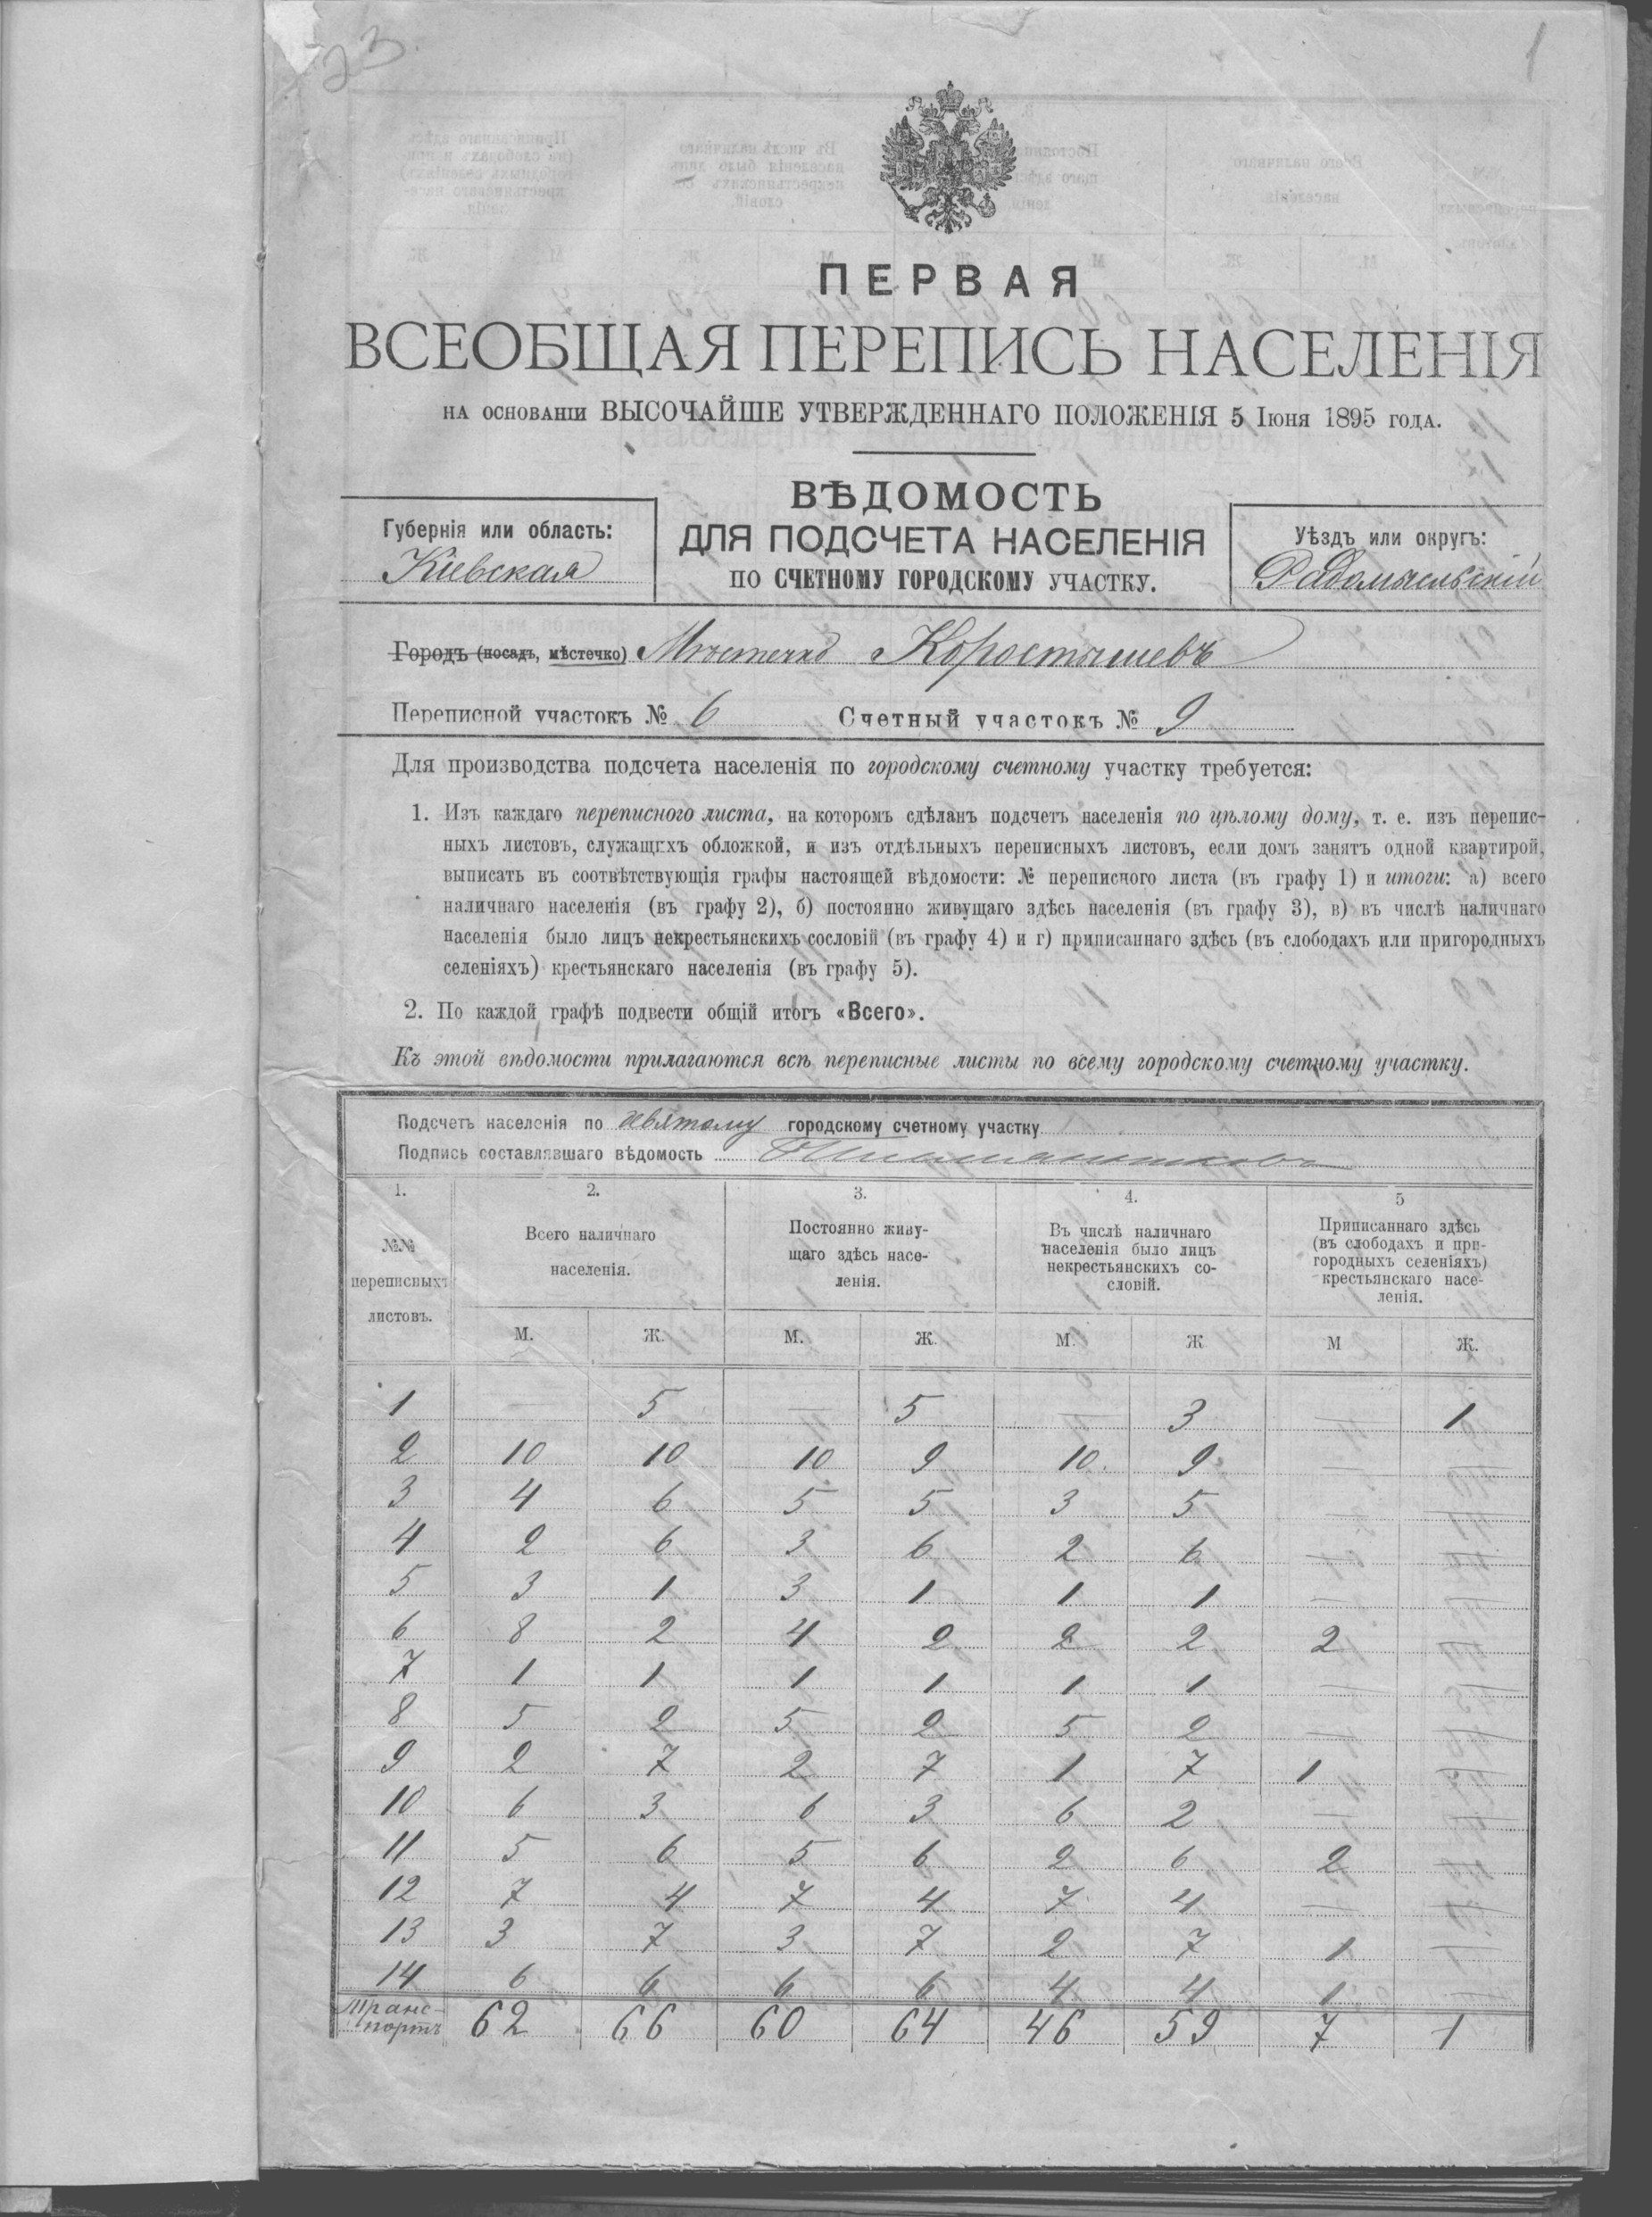 23
1
ПЕРВАЯ
ВСЕОБЩАЯ ПЕРЕПИСЬ НАСЕЛЕНІЯ
НА ОСНОВАНІИ ВЫСОЧАЙШЕ УТВЕРЖДЕННАГО ПОЛОЖЕНІЯ 5 Іюня 1895 ГОДА.
ВѢДОМОСТЬ
ДЛЯ ПОДСЧЕТА НАСЕЛЕНІЯ
ПО СЧЕТНОМУ ГОРОДСКОМУ УЧАСТКУ.
Губернія или область:
Кіевская
Уѣздъ или округъ:
Радомысльскій
Городъ (посадъ, мѣстечко) Мѣстечко Коростышевъ
Переписной участокъ № 6 Счетный участокъ № 9
Для производства подсчета населенія по городскому счетному участку требуется:
1. Изъ каждаго переписного листа, на которомъ сдѣланъ подсчетъ населенія по цѣлому дому, т. е. изъ перепис-
ныхъ листовъ, служащихъ обложкой, и изъ отдѣльныхъ переписныхъ листовъ, если домъ занятъ одной квартирой,
выписать въ соотвѣтствующія графы настоящей вѣдомости: № переписного листа (въ графу 1) и итоги: а) всего
наличнаго населенія (въ графу 2), б) постоянно живущаго здѣсь населенія (въ графу 3), в) въ числѣ наличнаго
населенія было лицъ некрестьянскихъ сословій (въ графу 4) и г) приписаннаго здѣсь (въ слободахъ или пригородныхъ
селеніяхъ) крестьянскаго населенія (въ графу 5).
2. По каждой графѣ подвести общій итогъ «Всего».
Къ этой вѣдомости прилагаются всѣ переписные листы по всему городскому счетному участку.
Подсчетъ населенія по девятому городскому счетному участку
Подпись составлявшаго вѣдомость
1. 2. 3. 4. 5
№№ переписныхъ листовъ.
Всего наличнаго
населенія.
Постоянно живу-
щаго здѣсь насе-
ленія.
Въ числѣ наличнаго
населенія было лицъ
некрестьянскихъ со-
словій.
Приписаннаго здѣсь
(въ слободахъ и при-
городныхъ селеніяхъ)
крестьянскаго насе-
ленія.
М. Ж. М. Ж. М. Ж М Ж.
1 — 5 — 5 — 3 — 1
2 10 10 10 9 10 9 — —
3 4 6 5 5 3 5 — —
4 2 6 3 6 2 6 — —
5 3 1 3 1 1 1 — —
6 8 2 4 2 2 2 2 —
7 1 1 1 1 1 1 — —
8 5 2 5 2 5 2 — —
9 2 7 2 7 1 7 1 —
10 6 3 6 3 6 2 — —
11 5 6 5 6 2 6 2 —
12 7 4 7 4 7 4 — —
13 3 7 3 7 2 7 1 —
14 6 6 6 6 4 4 1 —
Транс-
портъ 62 66 60 64 46 59 7 1